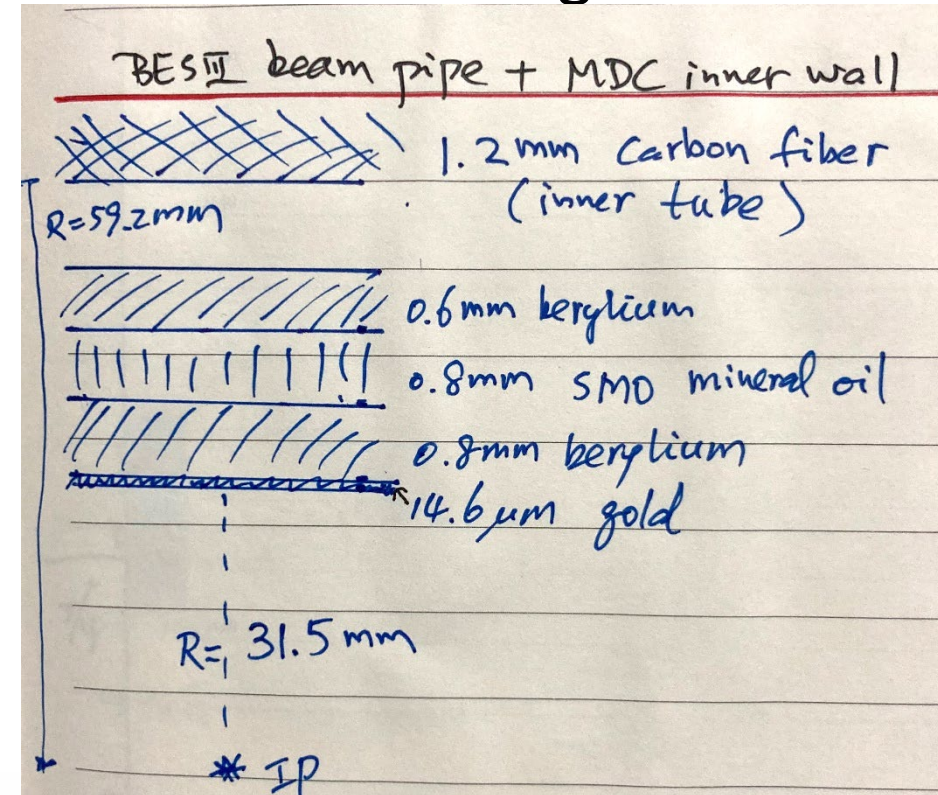 BESIII beam pipe + MDC inner wall
1.2mm Carbon fiber
(inner tube)
R=59.2mm
0.6mm berylium
0.8mm SMO mineral oil
0.8mm berylium
14.6μm gold
R= 31.5mm
IP